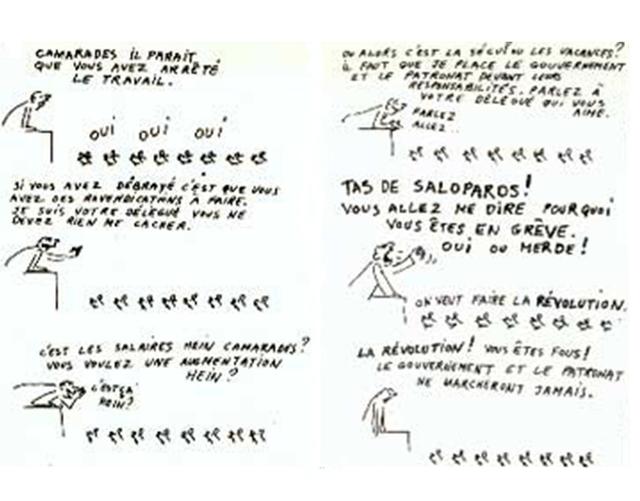 CAMARADES IL PARAIT
QUE VOUS AVEZ ARRÊTÉ
LE TRAVAIL.
OUI OUI OUI
SI VOUS AVEZ DÉBRAYÉ C'EST QUE VOUS
AVEZ DES REVENDICATIONS À FAIRE.
JE SUIS VOTRE DÉLÉGUÉ VOUS NE
DEVEZ RIEN ME CACHER.
C'EST LES SALAIRES HEIN CAMARADES?
VOUS VOULEZ UNE AUGMENTATION
HEIN?
C'EST ÇA
HEIN?
OU ALORS C'EST LA SÉCU? OU LES VACANCES?
IL FAUT QUE JE PLACE LE GOUVERNEMENT
ET LE PATRONAT DEVANT LEURS
RESPONSABILITÉS. PARLEZ À
VOTRE DÉLÉGUÉ QUI VOUS
AIME.
PARLEZ
ALLEZ..
TAS DE SALOPARDS!
VOUS ALLEZ ME DIRE POURQUOI
VOUS ÊTES EN GRÊVE.
OUI OU MERDE!
ON VEUT FAIRE LA RÉVOLUTION.
LA RÉVOLUTION! VOUS ÊTES FOUS!
LE GOUVERNEMENT ET LE PATRONAT
NE MARCHERONT JAMAIS.